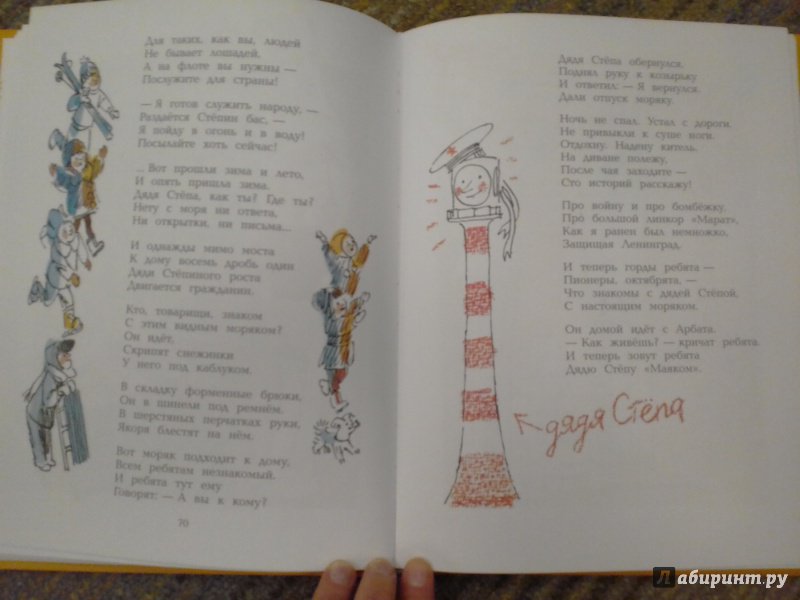 Для таких, как вы, людей
Не бывает лошадей,
А на флоте вы нужны —
Послужите для страны!
— Я готов служить народу, —
Раздаётся Стёпин бас, —
Я пойду в огонь и в воду!
Посылайте хоть сейчас!
...Вот прошли зима и лето,
И опять пришла зима.
Дядя Стёпа, как ты? Где ты?
Нету с моря ни ответа,
Ни открытки, ни письма...
И однажды мимо моста
К дому восемь дробь один
Дяди Стёпиного роста
Двигается гражданин.
Кто, товарищи, знаком
С этим видным моряком?
Он идёт,
Скрипят снежинки
У него под каблуком.
В складку форменные брюки,
Он в шинели под ремнём.
В шерстяных перчатках руки,
Якоря блестят на нём.
Вот моряк подходит к дому,
Всем ребятам незнакомый.
И ребята тут ему
Говорят: — А вы к кому?
70
Дядя Стёпа обернулся,
Поднял руку к козырьку
И ответил: — Я вернулся.
Дали отпуск моряку.
Ночь не спал. Устал с дороги.
Не привыкли к суше ноги.
Отдохну. Надену китель.
На диване полежу,
После чая заходите —
Сто историй расскажу!
Про войну и про бомбёжку,
Про большой линкор «Марат»,
Как я ранен был немножко,
Защищая Ленинград.
И теперь горды ребята —
Пионеры, октябрята, —
Что знакомы с дядей Стёпой,
С настоящим моряком.
Он домой идёт с Арбата.
— Как живёшь? — кричат ребята.
И теперь зовут ребята
Дядю Стёпу «Маяком».
дядя Стёпа
Лабиринт.ру